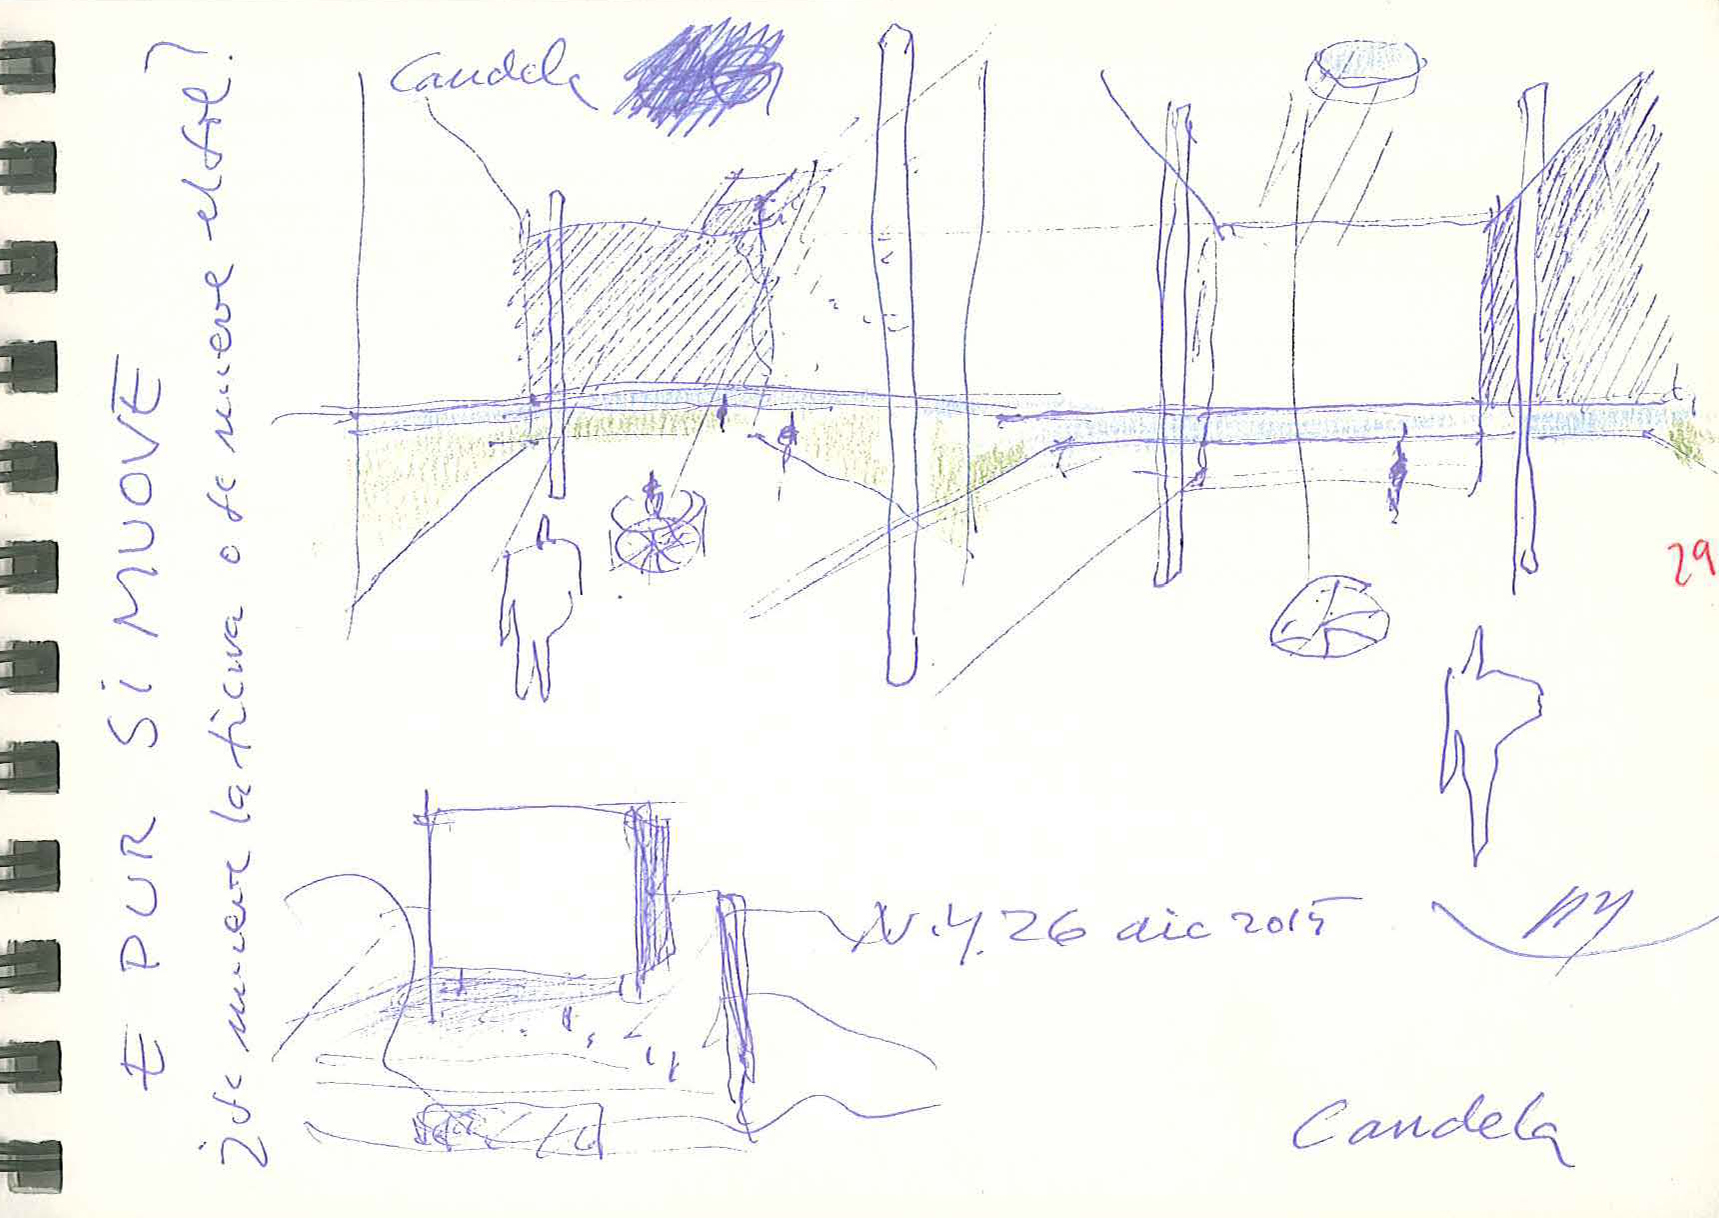 E PUR SI MUOVE
¿se mueve la tierra o se mueve el sol?
Candela
29
N.Y. 26 dic 2015
Candela